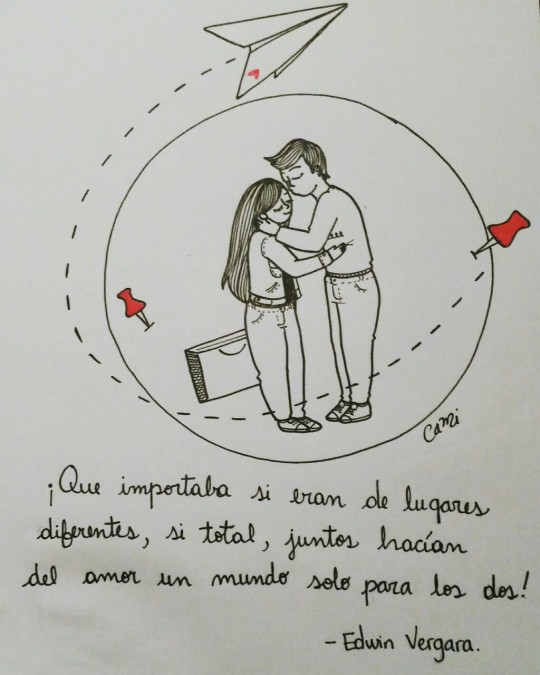 Cami
¡Que importaba si eran de lugares
diferentes, si total, juntos hacían
del amor un mundo solo para los dos!
- Edwin Vergara.